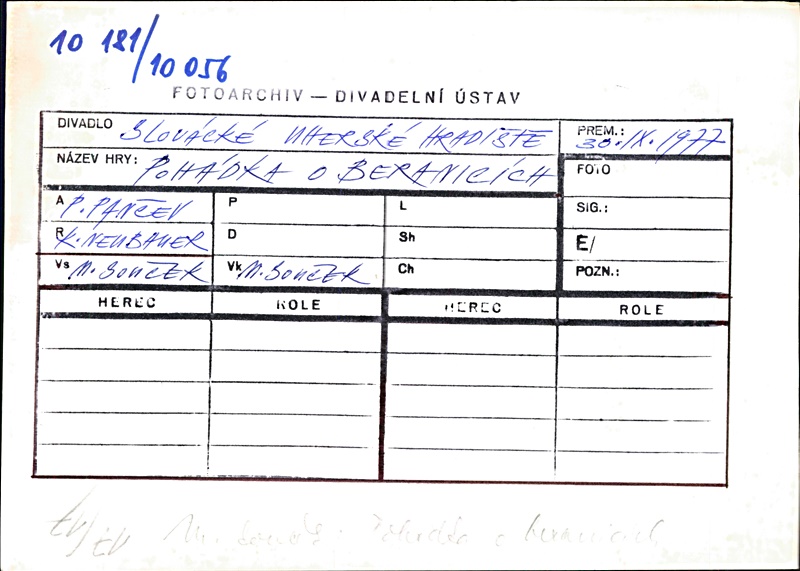 10 181/10 056
FOTOARCHIV — DIVADELNÍ ÚSTAV
DIVADLO SLOVÁCKÉ UHERSKÉ HRADIŠTE PREM.: 30.IX.1977
NÁZEV HRY: POHÁDKA O BERANICÍCH FOTO
A P. PANČEV P L SIG.:
R K. NEUBAUER D Sh E/
Vs M. SOUČEK Vk M. SOUČEK Ch POZN.:
HEREC ROLE HEREC ROLE
M. Pohádka o beranicích